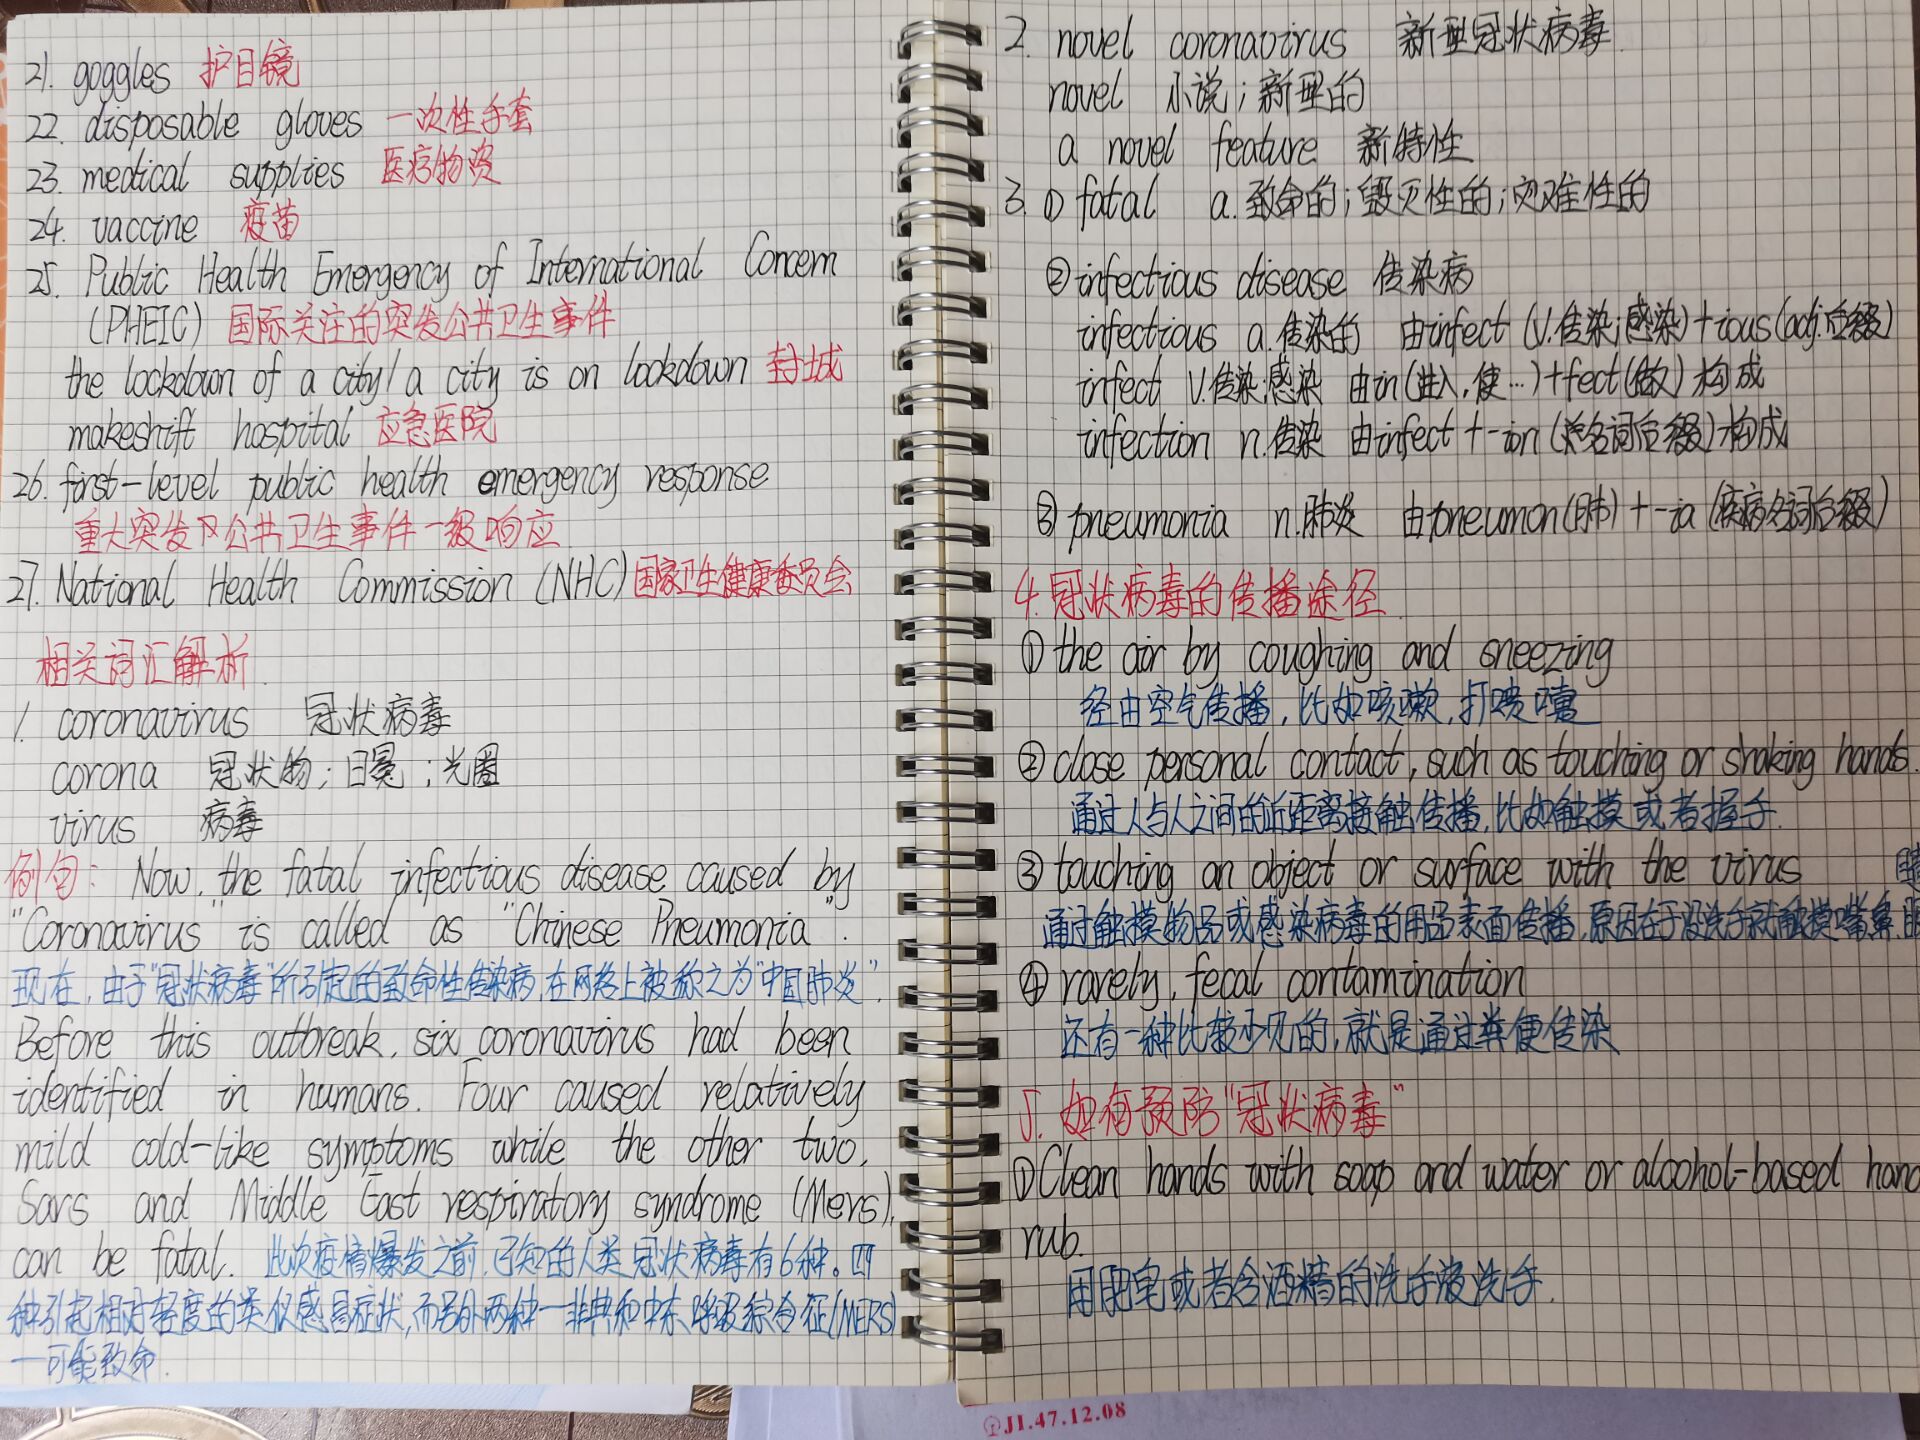 21. goggles 护目镜
22. disposable gloves 一次性手套
23. medical supplies 医疗物资
24. vaccine 疫苗
25. Public Health Emergency of International Concern
(PHEIC) 国际关注的突发公共卫生事件
the lockdown of a city/a city is on lockdown 封城
makeshift hospital 应急医院
26. first-level public health emergency response
重大突发及公共卫生事件一级响应
27. National Health Commission (NHC) 国家卫生健康委员会
相关词汇解析.
1. coronavirus 冠状病毒
corona 冠状物;日冕;光圈
virus 病毒
例句: Now, the fatal infectious disease caused by
"Coronavirus" is called as "Chinese Pneumonia".
现在,由于"冠状病毒"所引起的致命性传染病,在网络上被称之为"中国肺炎".
Before this outbreak, six coronavirus had been
identified in humans. Four caused relatively
mild cold-like symptoms while the other two,
Sars and Middle East respiratory syndrome (Mers),
can be fatal. 此次疫情爆发之前,已知的人类冠状病毒有6种。四
种引起相对轻度的类似感冒症状,而另外两种一非典和中东呼吸综合征(MERS)
一可能致命.
2. novel coronavirus 新型冠状病毒.
novel 小说;新型的
a novel feature 新特性
3. ① fatal a.致命的;毁灭性的;灾难性的
② infectious disease 传染病
infectious a.传染的 由infect (v.传染;感染)+ious(adj.后缀)
infect v.传染;感染 由in(进入,使…)+fect(做)构成
infection n.传染 由infect+-ion(名词后缀)构成
③ pneumonia n.肺炎 由pneumon(肺)+-ia(疾病名词后缀)
4. 冠状病毒的传播途径.
① the air by coughing and sneezing
经由空气传播,比如咳嗽,打喷嚏
② close personal contact, such as touching or shaking hands.
通过人与人之间的近距离接触传播,比如触摸或者握手.
③ touching an object or surface with the virus
通过触摸物品或感染病毒的用品表面传播,原因在于没洗手就触摸嘴鼻,眼
④ rarely, fecal contamination
还有一种比较少见的,就是通过粪便传染
5. 如何预防"冠状病毒"
① Clean hands with soap and water or alcohol-based hand
rub.
用肥皂或者含酒精的洗手液洗手.
J1.47.12.08